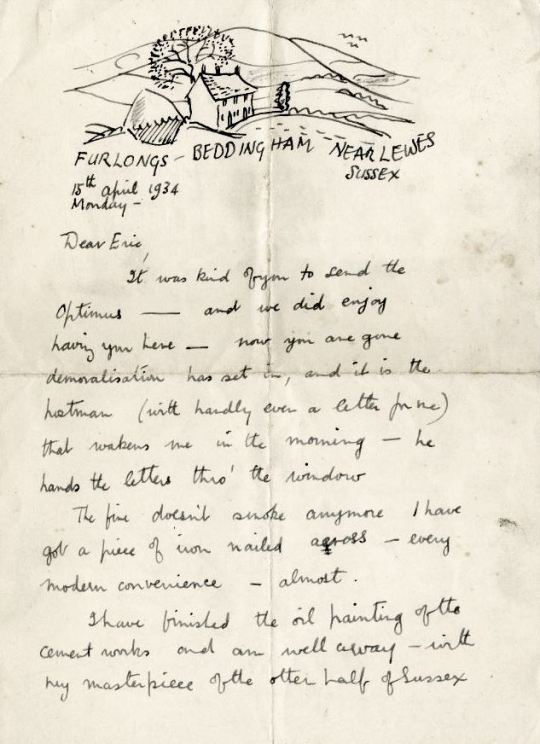 FURLONGS - BEDDINGHAM NEAR LEWES
SUSSEX
15th april 1934
Monday -
Dear Eric,
It was kind of you to send the
Optimus — and we did enjoy
having you here — now you are gone
demoralisation has set in, and it is the
postman (with hardly ever a letter for me)
that wakens me in the morning - he
hands the letters thro' the window
The fire doesn't smoke anymore I have
got a piece of iron nailed across - every
modern convenience - almost.
I have finished the oil painting of the
cement works and am well away - with
my masterpiece of the other half of Sussex